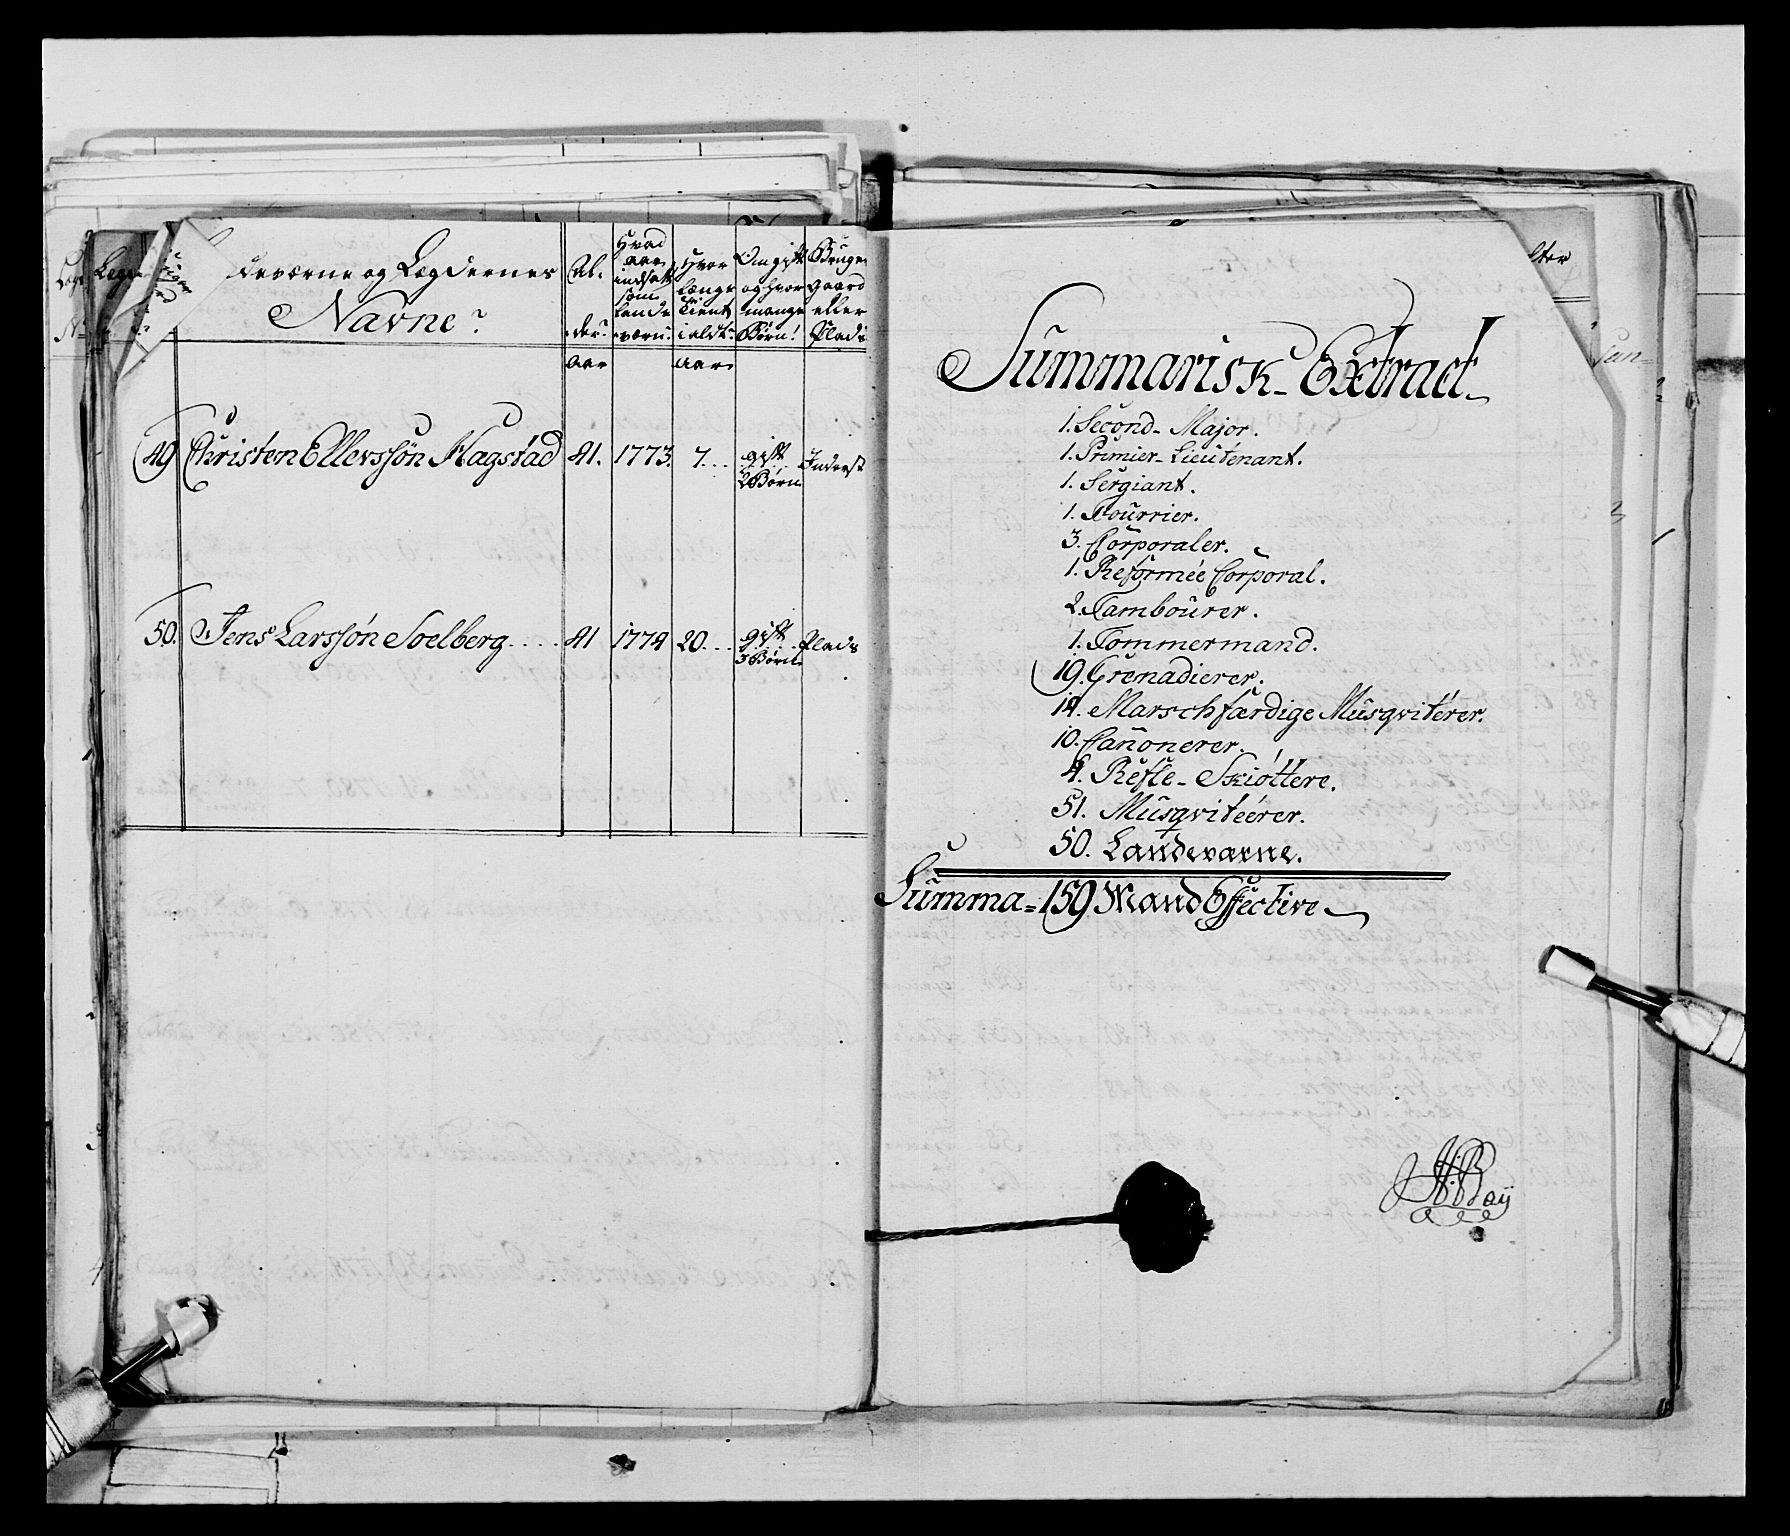 deværne og Lægdernes
Navne?
Al-
der
aar
Hvad
aar
indsatt
som
Lande
værn
Hvor
længe
tient
i alt
aar
Om gift
og hvor
mange
Børn!
Bruger
gaard
eller
Plads
49 Christen Ellevssön Hagstad 41. 1773. 7... gift 2 Børn Inderst
50. Jens Larssön Soelberg.... 41 1774 20... gift 3 Børn Plads
Summarisk Extract
1. Second-Major.
1. Primier-Lieutenant.
1. Sergiant.
1. Fourrier.
3. Corporaler.
1. Reformée Corporal.
2. Tambourer.
1. Tömmermand.
19. Grenadierer.
14. Marschfærdige Musqvitérer.
10. Canonerer.
4. Refle-Skiöttere.
51. Musqviteérer.
50. Landeværne.
Summa = 159 Mand Effective